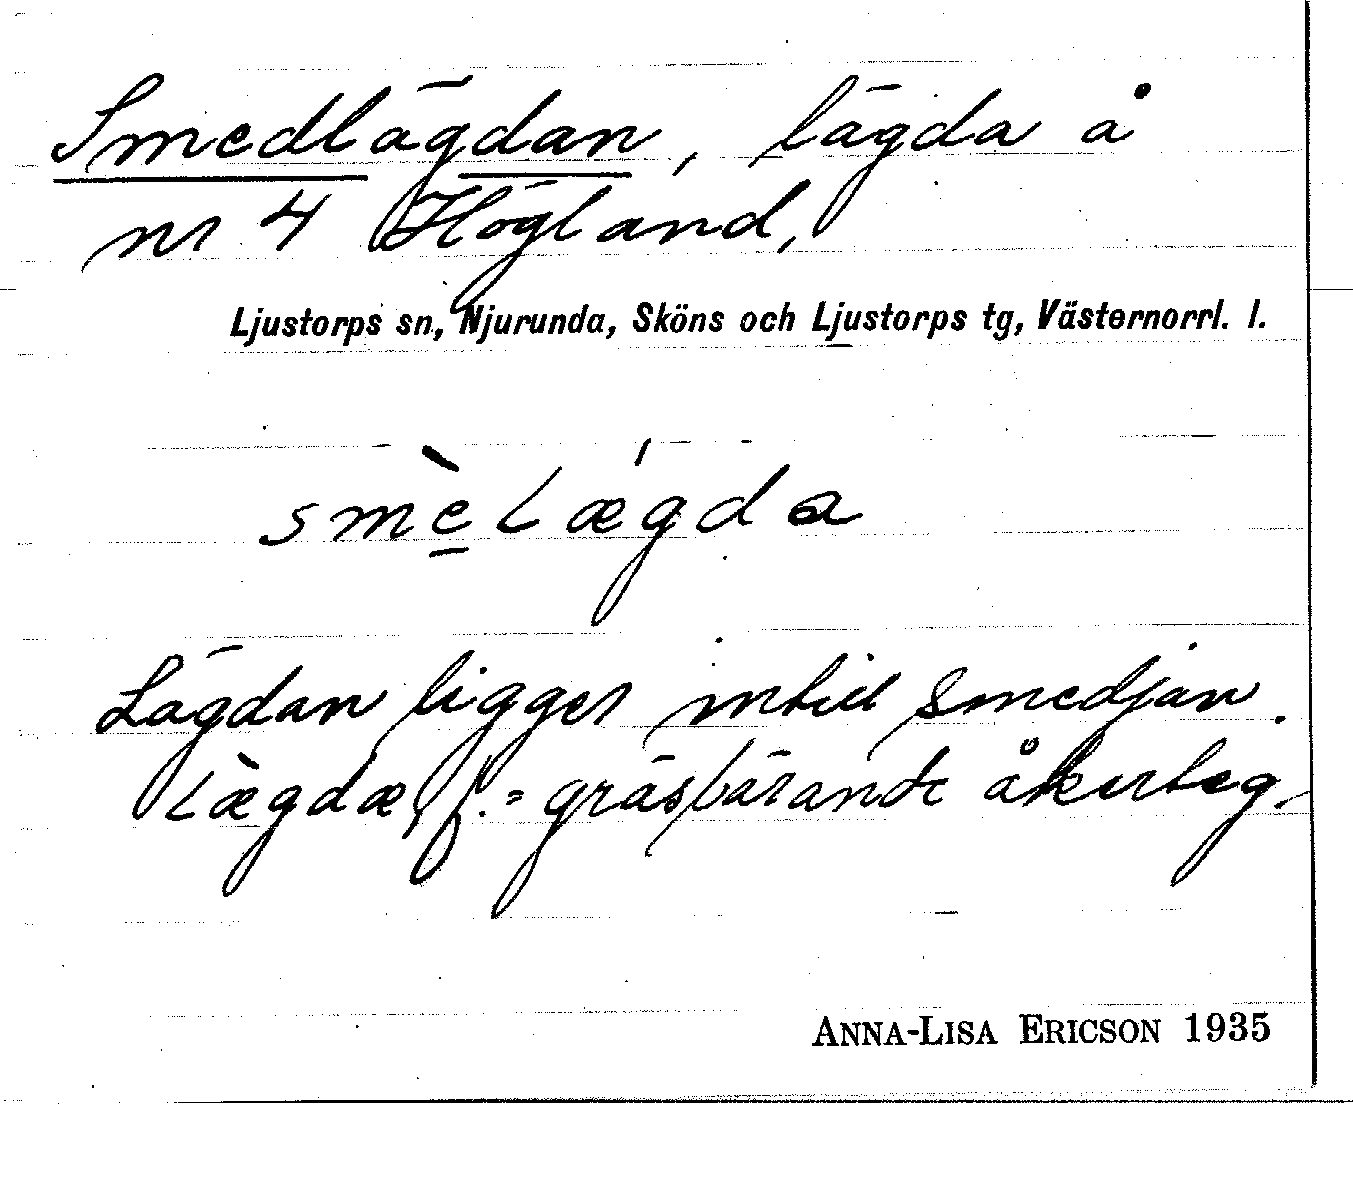 Smedlägdan, lägda å
nr 4 Högland,
Ljustorps sn, Njurunda, Sköns och Ljustorps tg, Västernorrl. l.
smè̲Lǽgda
Lägdan ligger intill smedjan.
Læ̀gdæ, f. = gräsbärande åkerteg.
ANNA-LISA ERICSON 1935